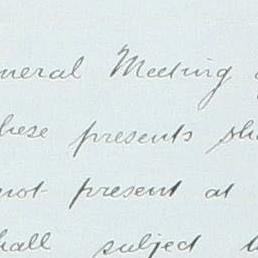 neral Meeting
hese presents sha
not present at
hall subject t